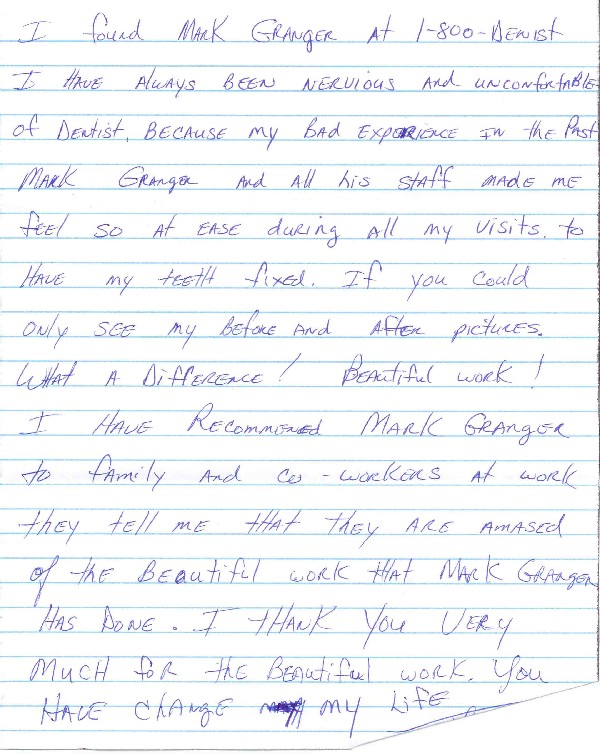 I found Mark Granger at 1-800-Dentist
I Have Always Been Nervious and unconfortable
of Dentist. Because my Bad Experience In the Past
Mark Granger and all his staff made me
feel so at ease during all my visits. to
Have my teeth fixed. If you could
only see my Before and After pictures.
What a Difference! Beautiful work!
I Have Recommened Mark Granger
to family and co-workers at work
they tell me that they are amased
of the Beautiful work that Mark Granger
Has Done. I thank you very
much for the Beautiful work. you
Have change my Life